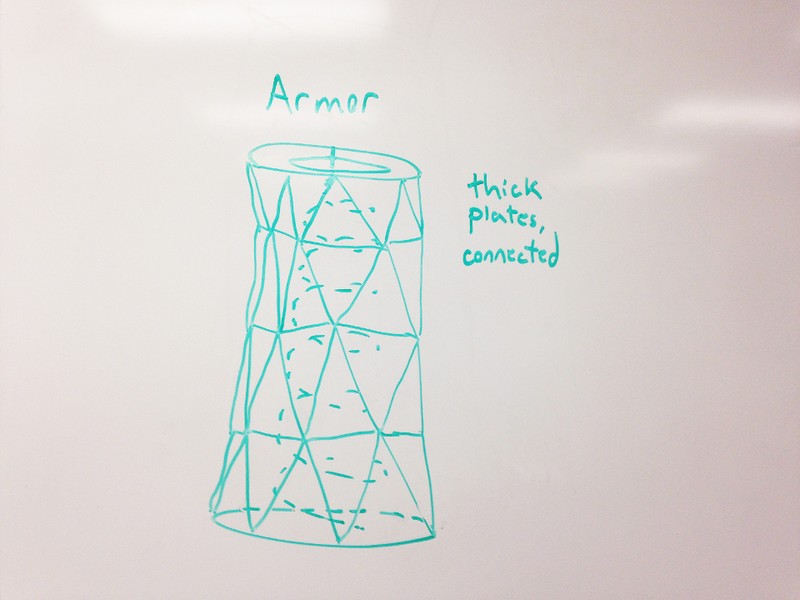 Armor
thick
plates,
connected